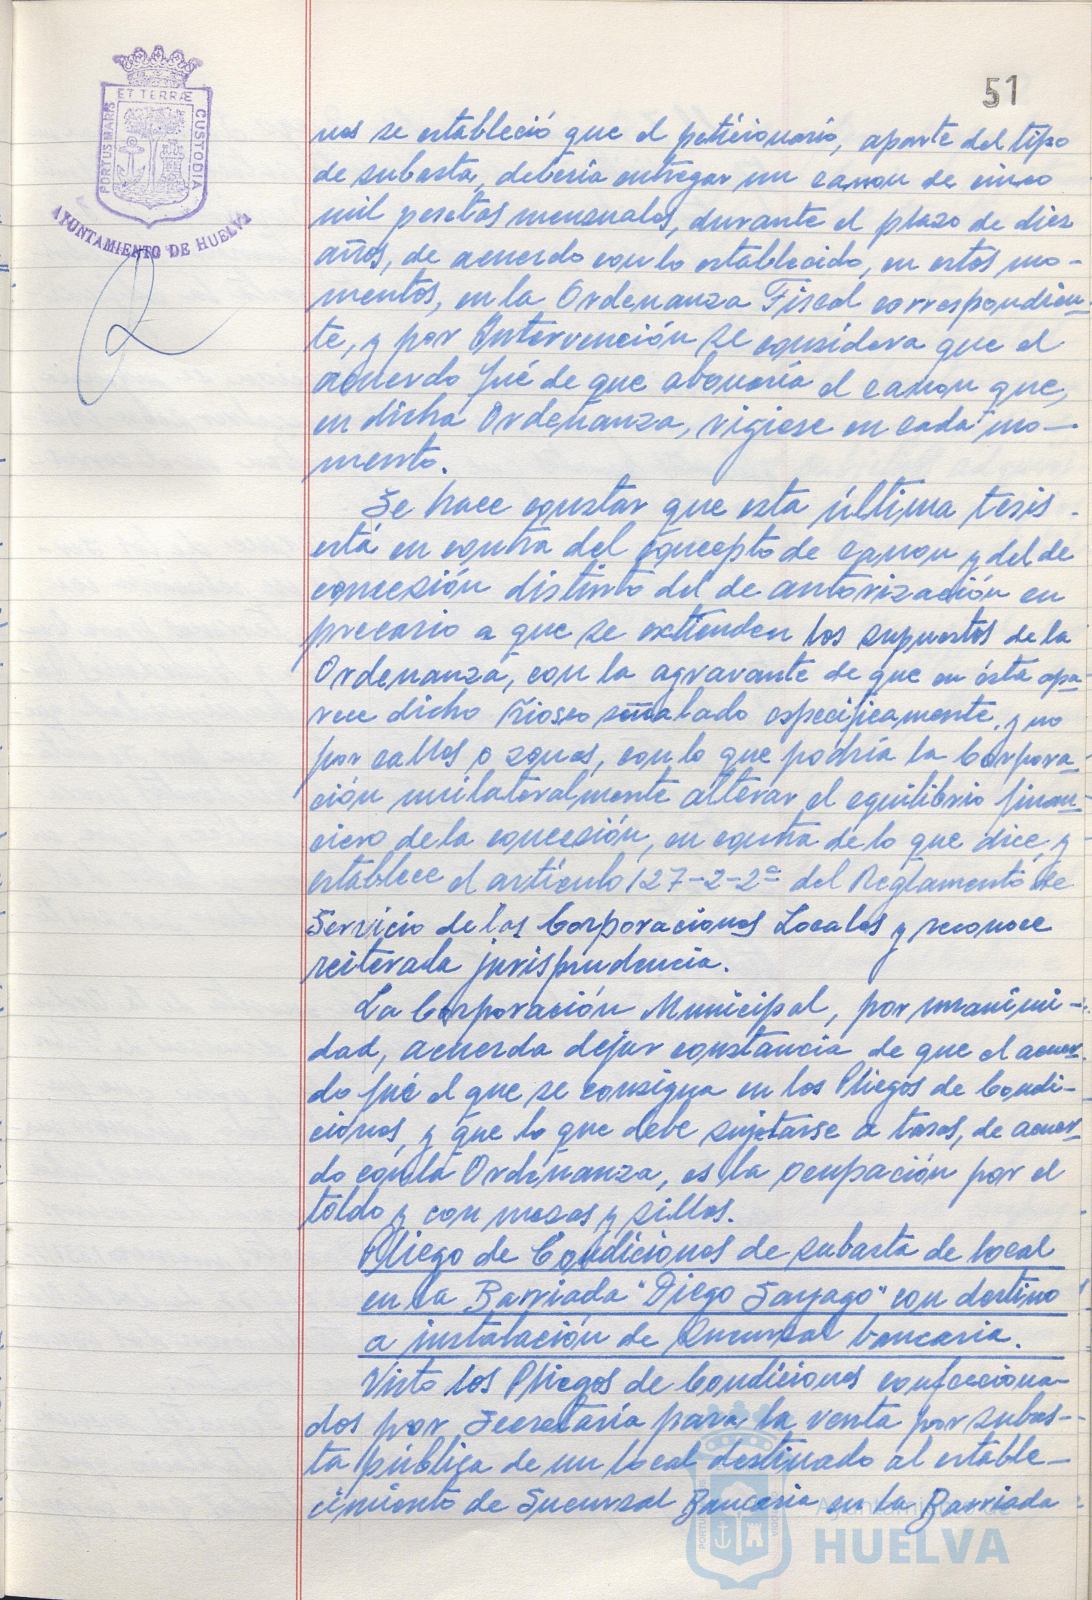 51
ET TERRÆ
PORTUS MARIS
CUSTODIA
AYUNTAMIENTO DE HUELVA
nes se estableció que el peticionario, aparte del tipo
de subasta, debería entregar un canon de cinco
mil pesetas mensuales, durante el plazo de diez
años, de acuerdo con lo establecido, en estos mo-
mentos, en la Ordenanza Fiscal correspondien-
te, y por Intervención se considera que el
acuerdo fué de que abonaría el canon que,
en dicha Ordenanza, vigiese en cada mo-
mento.
Se hace constar que esta última tesis
está en contra del concepto de canon y del de
concesión distinto del de autorización en
precario a que se extienden los supuestos de la
Ordenanza, con la agravante de que en ésta apa-
rece dicho Kiosco señalado especificamente, y no
por calles o zonas, con lo que podría la Corpora-
ción unilateralmente alterar el equilibrio finan-
ciero de la concesión, en contra de lo que dice, y
establece el artículo 127-2-2ª del Reglamento de
Servicio de las Corporaciones Locales y reconoce
reiterada jurisprudencia.
La Corporación Municipal, por unanimi-
dad, acuerda dejar constancia de que el acuer-
do fué el que se consigna en los Pliegos de Condi-
ciones, y que lo que debe sujetarse a tasas, de acuer-
do con la Ordenanza, es la ocupación por el
toldo y con mesas y sillas.
Pliego de Condiciones de subasta de local
en la Barriada "Diego Sayago" con destino
a instalación de Sucursal bancaria.
Visto los Pliegos de Condiciones confecciona-
dos por Secretaría para la venta por subas-
ta pública de un local destinado al estable-
cimiento de Sucursal Bancaria en la Barriada
Ayuntamiento de
HUELVA